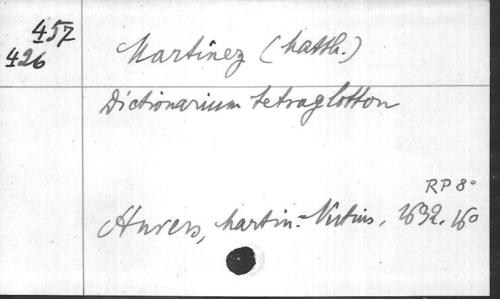 457
426
Martinez (Matth.)
Dictionarium tetraglotton
RP 8°
Anvers, Martin. Nutius, 1632. 16°